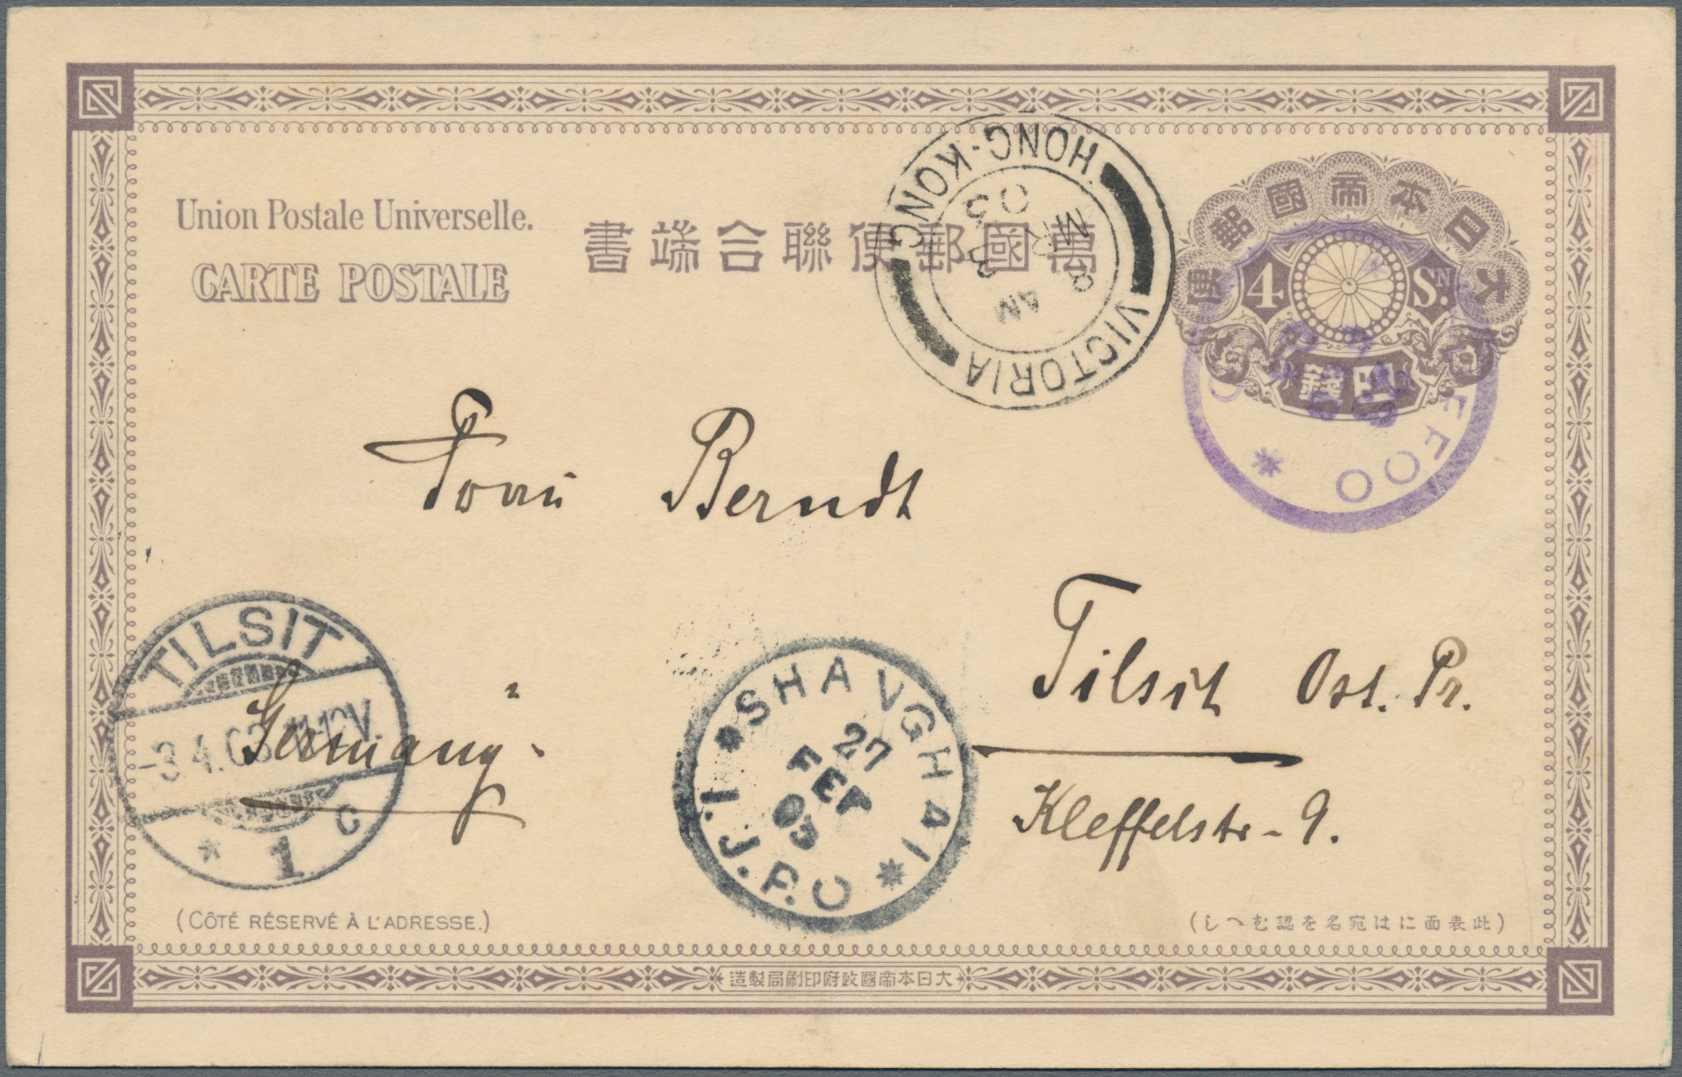 Union Postale Universelle.
CARTE POSTALE
書端合聯便郵國萬
大日本帝國郵便
4 Sn.
四錢
HONG-KONG
VICTORIA
8 AM
MR
03
FFOO
Frau Berndt
Tilsit Ost. Pr.
Kleffelstr-9.
Germany
TILSIT
-3.4.03. 11-12V.
* 1 c
*SHANGHAI*
27
FEB
03
I.J.P.O
(CÔTÉ RÉSERVÉ À L'ADRESSE.)
(しへむ認を名宛はに面表此)
造製局刷印府政國帝本日大